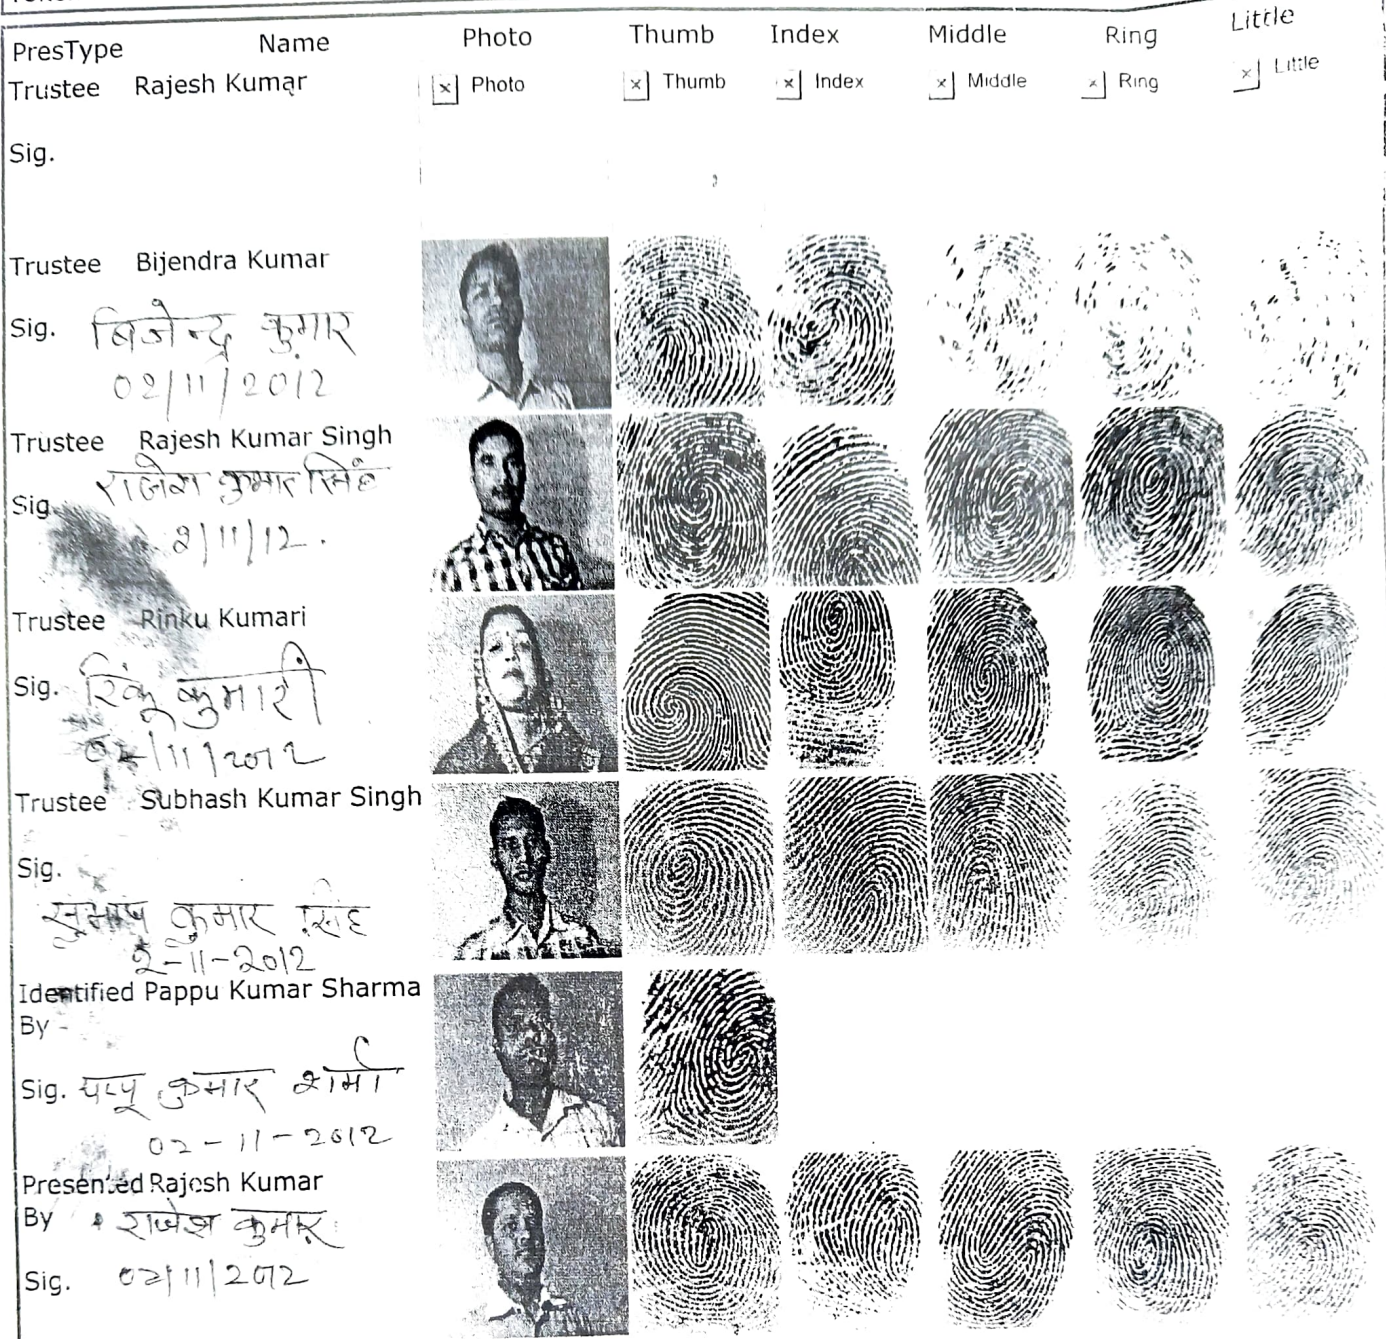 PresType Name Photo Thumb Index Middle Ring Little
Trustee Rajesh Kumar Photo Thumb Index Middle Ring Little
Sig.
Trustee Bijendra Kumar
Sig. बिजेन्द्र कुमार
02/11/2012
Trustee Rajesh Kumar Singh
राजेश कुमार सिंह
Sig.
2/11/12.
Trustee Rinku Kumari
Sig. रिंकू कुमारी
02/11/2012
Trustee Subhash Kumar Singh
Sig.
सुभाष कुमार सिंह
2-11-2012
Identified Pappu Kumar Sharma
By -
Sig. पप्पू कुमार शर्मा
02-11-2012
Presented Rajesh Kumar
By राजेश कुमार
Sig. 02/11/2012